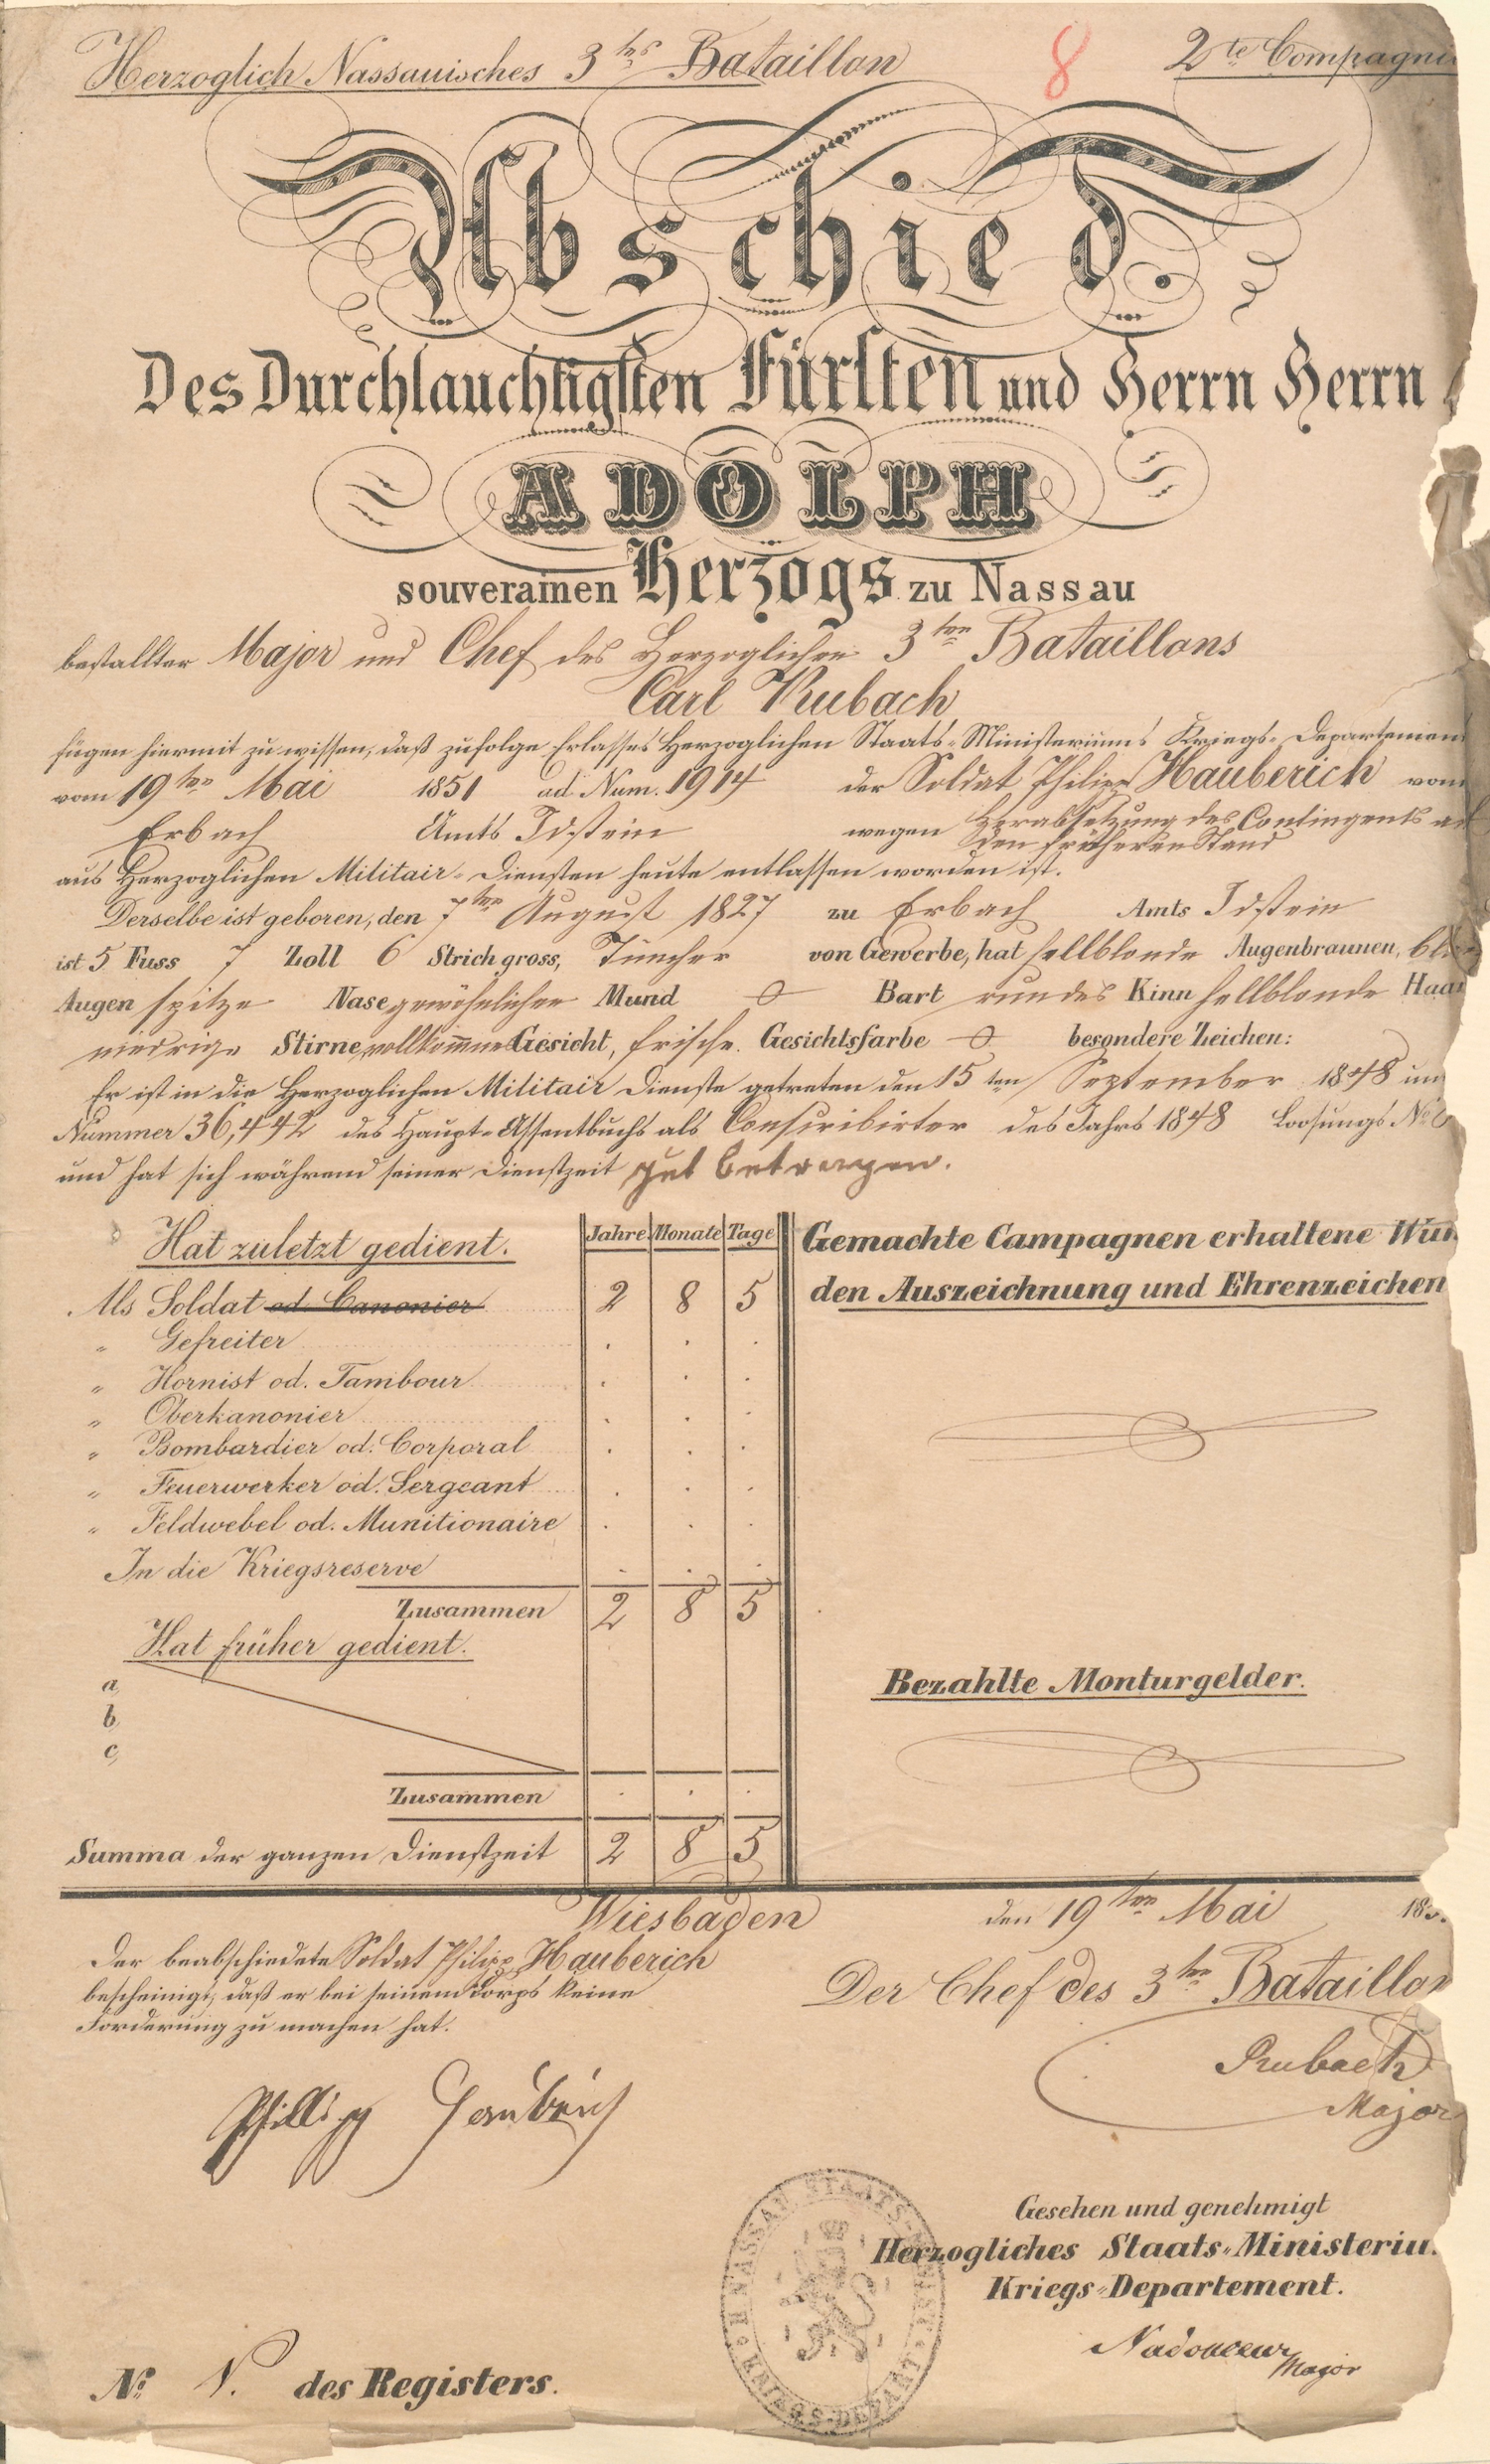 Herzoglich Nassauisches 3tes Bataillon 8 2te Compagnie
Abschied.
Des Durchlauchtigsten Fürsten und Herrn Herrn
ADOLPH
souverainen Herzogs zu Nassau
bestallter Major und Chef des Herzoglichen 3ten Bataillons
Carl Rubach
fügen hiermit zu wissen, daß zufolge Erlasses Herzoglichen Staats-Ministeriums Kriegs-Departement
vom 19ten Mai 1851 ad Num. 1914 der Soldat Philipp Hauberich vom
Erbach Amts Idstein wegen Herabsetzung des Contingents auf
den früheren Stand
aus Herzoglichen Militair-Diensten heute entlassen worden ist.
Derselbe ist geboren, den 7ten August 1827 zu Erbach Amts Idstein
ist 5 Fuss 7 Zoll 6 Strich gross, Tüncher von Gewerbe, hat hellblonde Augenbraunen,
Augen spitze Nase gewöhnlichen Mund 0 Bart rundes Kinn hellblonde Haar
niedrige Stirne vollkommnes Gesicht, frische Gesichtsfarbe 0 besondere Zeichen:
Er ist in die Herzoglichen Militair Dienste getreten den 15ten September 1848 un
Nummer 36,442 des Haupt-Assentbuchs als Conscribirter des Jahrs 1848 Loosungs No
und hat sich während seiner Dienstzeit gut betragen.
Hat zuletzt gedient. Jahre Monate Tage Gemachte Campagnen erhaltene Wun
den Auszeichnung und Ehrenzeichen
Als Soldat od. Canonier 2 8 5
" Gefreiter
" Hornist od. Tambour
" Oberkanonier
" Bombardier od. Corporal
" Feuerwerker od. Sergeant
" Feldwebel od. Munitionaire
In die Kriegsreserve
Zusammen 2 8 5
Hat früher gedient.
a,
b,
c,
Bezahlte Monturgelder.
Zusammen
Summa der ganzen Dienstzeit 2 8 5
Wiesbaden den 19ten Mai 18
Der beabschiedete Soldat Philipp Hauberich
bescheinigt, daß er bei seinem Corps keine
Forderung zu machen hat.
Der Chef des 3ten Bataillon
Rubach
Major
Phillipp Hauberich
Gesehen und genehmigt
Herzogliches Staats-Ministeriu
Kriegs-Departement.
Nadouceur
Major
H. NASSAU. STAATS-MINIST. KRIEGS-DEPART.
No. 1. des Registers.